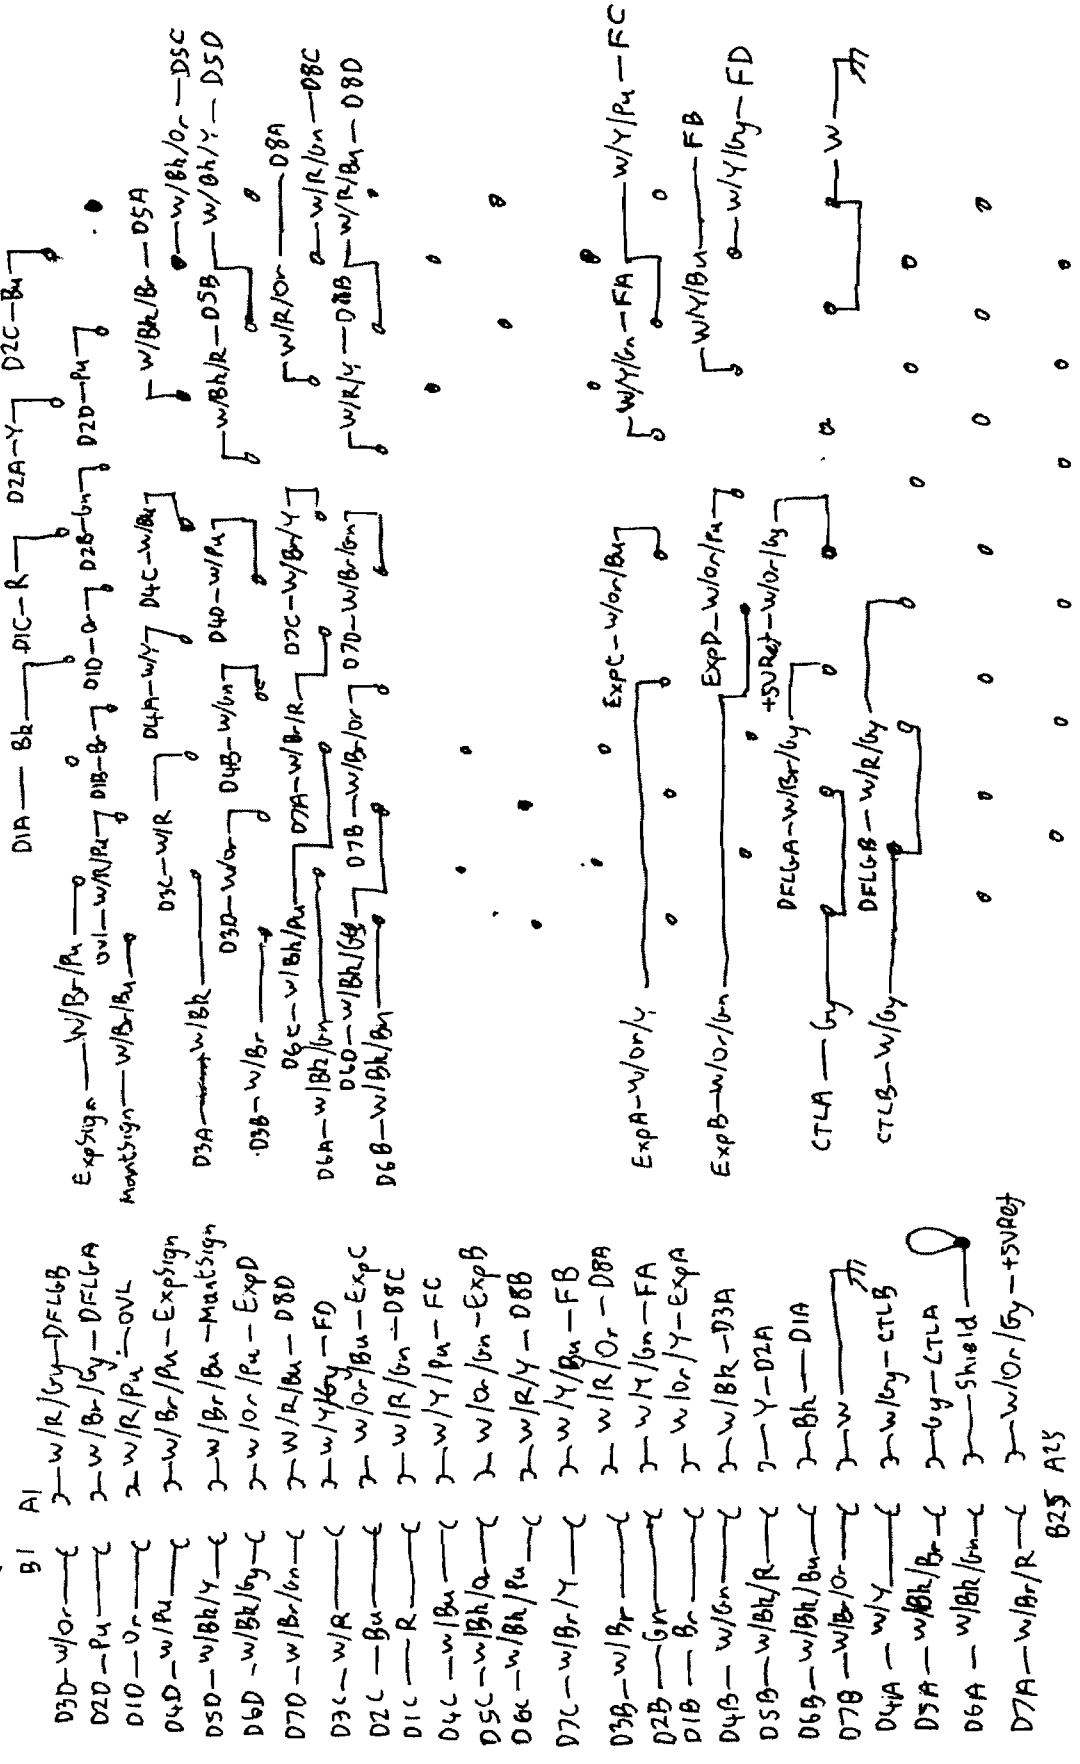 B1 A1
D3D—W/Or W/R/Gy—DFLGB
D2D—Pu W/Br/Gy—DFLGA
D1D—Or W/R/Pu—OVL
D4D—W/Pu W/Br/Pu—ExpSign
D5D—W/Bk/Y W/Br/Bu—MantSign
D6D—W/Bk/Gy W/Or/Pu—ExpD
D7D—W/Br/Gn W/R/Bu—D8D
D3C—W/R W/Y/Gy—FD
D2C—Bu W/Or/Bu—ExpC
D1C—R W/R/Gn—D8C
D4C—W/Bu W/Y/Pu—FC
D5C—W/Bk/Or W/Or/Gn—ExpB
D6C—W/Bk/Pu W/R/Y—D8B
D7C—W/Br/Y W/Y/Bu—FB
D3B—W/Br W/R/Or—D8A
D2B—Gn W/Y/Gn—FA
D1B—Br W/Or/Y—ExpA
D4B—W/Gn W/Bk—D3A
D5B—W/Bk/R Y—D2A
D6B—W/Bk/Bu Bk—D1A
D7B—W/Br/Or W
D4A—W/Y W/Gy—CTLB
D5A—W/Bk/Br Gy—CTLA
D6A—W/Bk/Gn Shield
D7A—W/Br/R W/Or/Gy—+5VRef
B25 A25
D1A—Bk D1C—R D2A—Y D2C—Bu
ExpSign—W/Br/Pu
Ovl—W/R/Pu D1B—Br D1D—Or D2B—Gn D2D—Pu
MantSign—W/Br/Bu
D3C—W/R D4A—W/Y D4C—W/Bu W/Bk/Br—D5A W/Bk/Or—D5C
D3A—W/Bk
D3D—W/Or D4B—W/Gn D4D—W/Pu W/Bk/R—D5B W/Bk/Y—D5D
D3B—W/Br
D6C—W/Bk/Pu D7A—W/Br/R D7C—W/Br/Y W/R/Or—D8A
D6A—W/Bk/Gn W/R/Gn—D8C
D6D—W/Bk/Gy D7B—W/Br/Or D7D—W/Br/Gn W/R/Y—D8B W/R/Bu—D8D
D6B—W/Bk/Bu
ExpC—W/Or/Bu W/Y/Gn—FA W/Y/Pu—FC
ExpA—W/Or/Y
ExpD—W/Or/Pu W/Y/Bu—FB
ExpB—W/Or/Gn W/Y/Gy—FD
+5VRef—W/Or/Gy
DFLGA—W/Br/Gy
CTLA—Gy W
DFLGB—W/R/Gy
CTLB—W/Gy